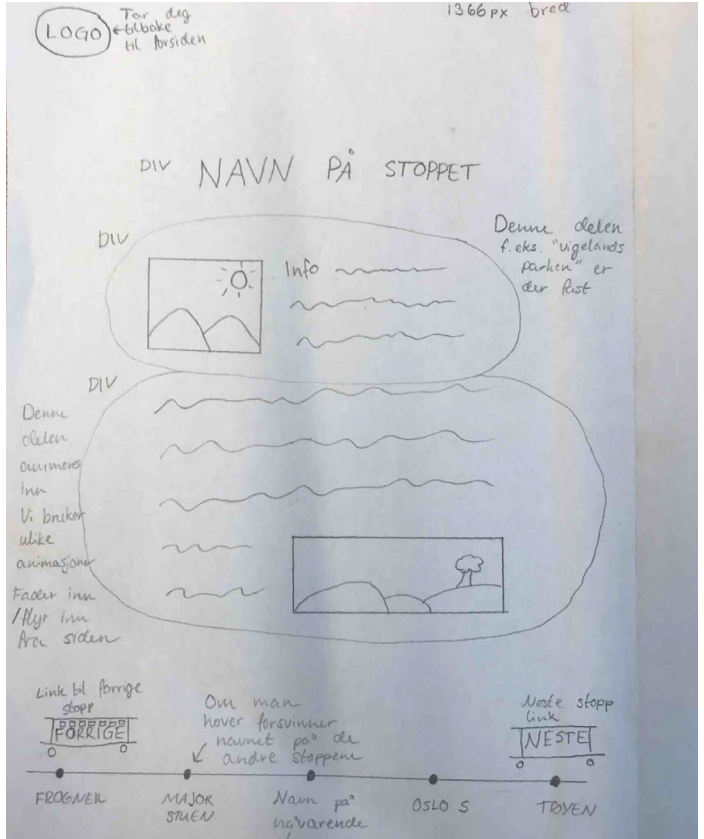 1366px bred
LOGO
Tar deg
tilbake
til forsiden
DIV NAVN PÅ STOPPET
DIV
Info
Denne delen
f.eks. "vigelands
parken" er
der fast
DIV
Denne
delen
animeres
Inn
Vi bruker
ulike
animasjoner
Fader inn
/flyr inn
fra siden
Link til forrige
stopp
FORRIGE
Om man
hover forsvinner
navnet på de
andre stoppene
Neste stopp
link
NESTE
FROGNER
MAJOR
STUEN
Navn på
nåværende
OSLO S
TØYEN